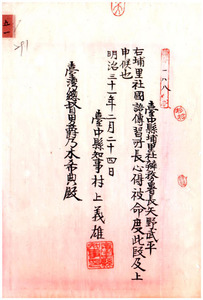 臺中縣埔里社辨務署長矢野武平
右埔里社國語傳習所長心得被命度此段及上
申候也
明治三十一年二月二十四日
臺中縣知事村上義雄
臺灣總督男爵乃木希典殿